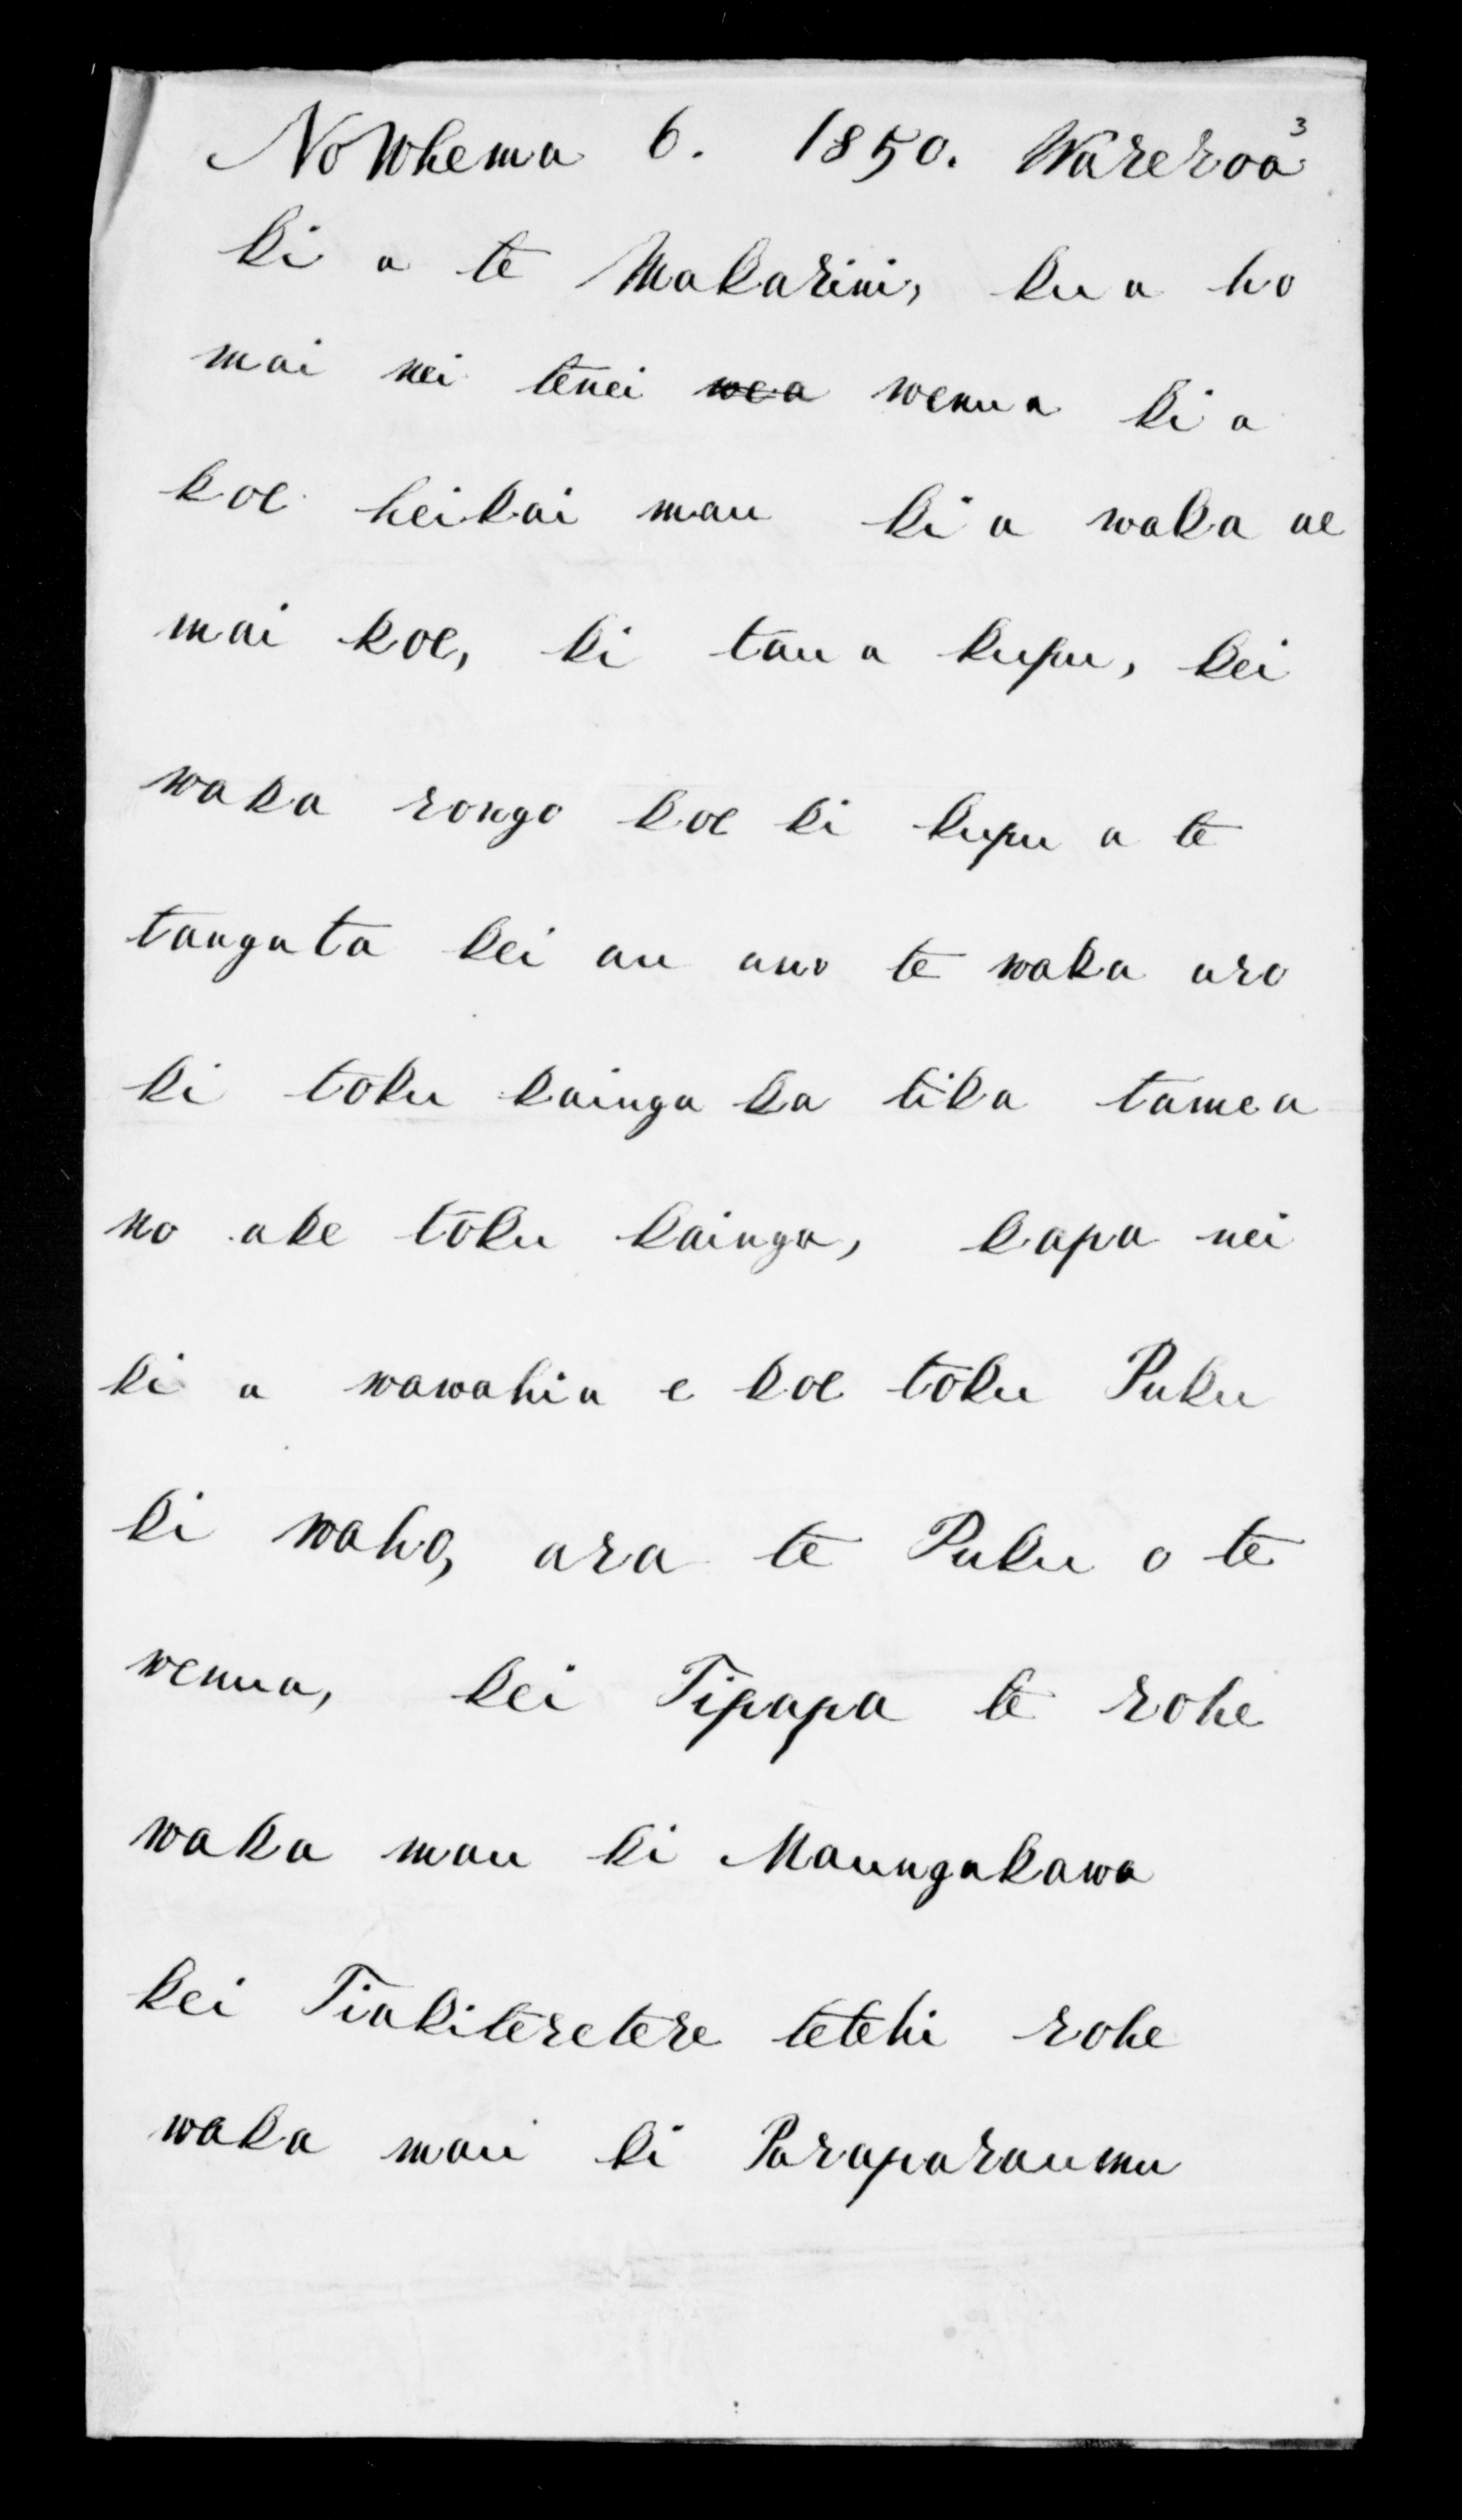 3
No Whema 6. 1850. Wareroa
ki a te Makarini, ku a ho
mai nei tenei wea wenua ki a
koe heikai mau ki a waka ae
mai koe, ki tau a kupu, kei
waka rongo koe ki kupu a te
tangata kei au ano te waka aro
ki toku kainga ka tika tamea
no ake toku kainga, kapa nei
ki a wawahia e koe toku Puku
ki waho, ara te Puku o te
wenua, kei Tipapa te rohe
waka mau ki Maungakawa
kei Tiakiteretere tetehi rohe
waka mau ki Paraparaumu